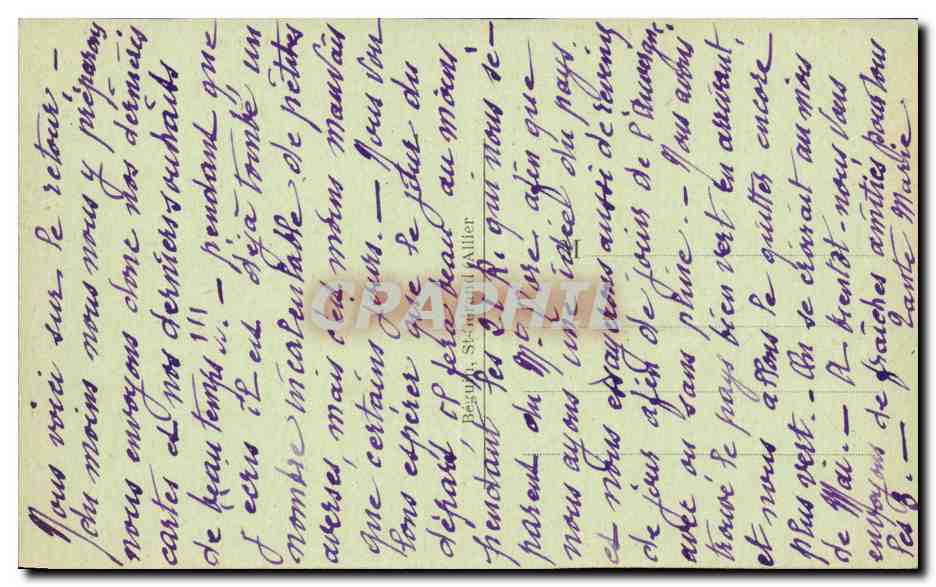 Nous voici sur le retour -
du moins nous nous y préparons
nous envoyons donc nos dernières
cartes et nos derniers souhaits
de beau temps !!! - pendant que
j'ecris il est déjà tombé un
nombre incalculable de petites
averses, mais c'est moins mauvais
que certains jours. - Nous vou-
lons espérer que le jour du
départ il fera beau au moins
pendant les 2 h ½ qui nous sé-
parent du Mt Doré afin que
nous ayons une idée du pays
et nous essayons aussi de revenir
de jour afin de jouir de l'Auvergne
avec ou sans pluie. - Nous avons
trouvé le pays bien vert en arrivant,
et nous allons le quitter encore
plus vert. - On se croirait au mois
de Mai. - A bientot. nous vous
envoyons de fraîches amitiés pour tous
les 3. - Tante Marie
Béguin, St-Gérand (Allier
CPAPHIL